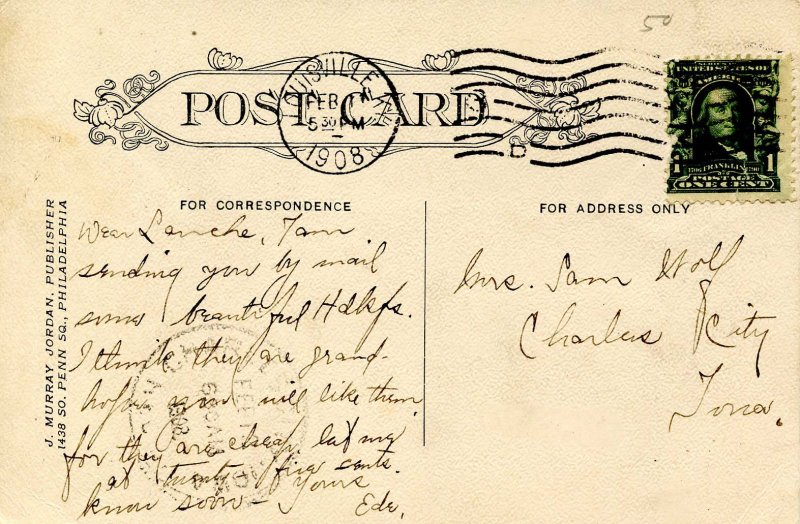 POST CARD
LOUISVILLE, KY.
FEB
5 30 PM
1908
UNITED STATES OF
AMERICA
1706 FRANKLIN 1790
POSTAGE
1 ONE CENT 1
FOR CORRESPONDENCE
J. MURRAY JORDAN, PUBLISHER
1438 SO. PENN SQ., PHILADELPHIA
Dear Lanche, I am
sending you by mail
some beautiful Hdkfs.
I think they are grand-
hope you will like them
for they are cheap, let me
at twenty five cents.
know soon - Yours
Ede.
FOR ADDRESS ONLY
Mrs. Sam Wolf
Charles City
Iowa.